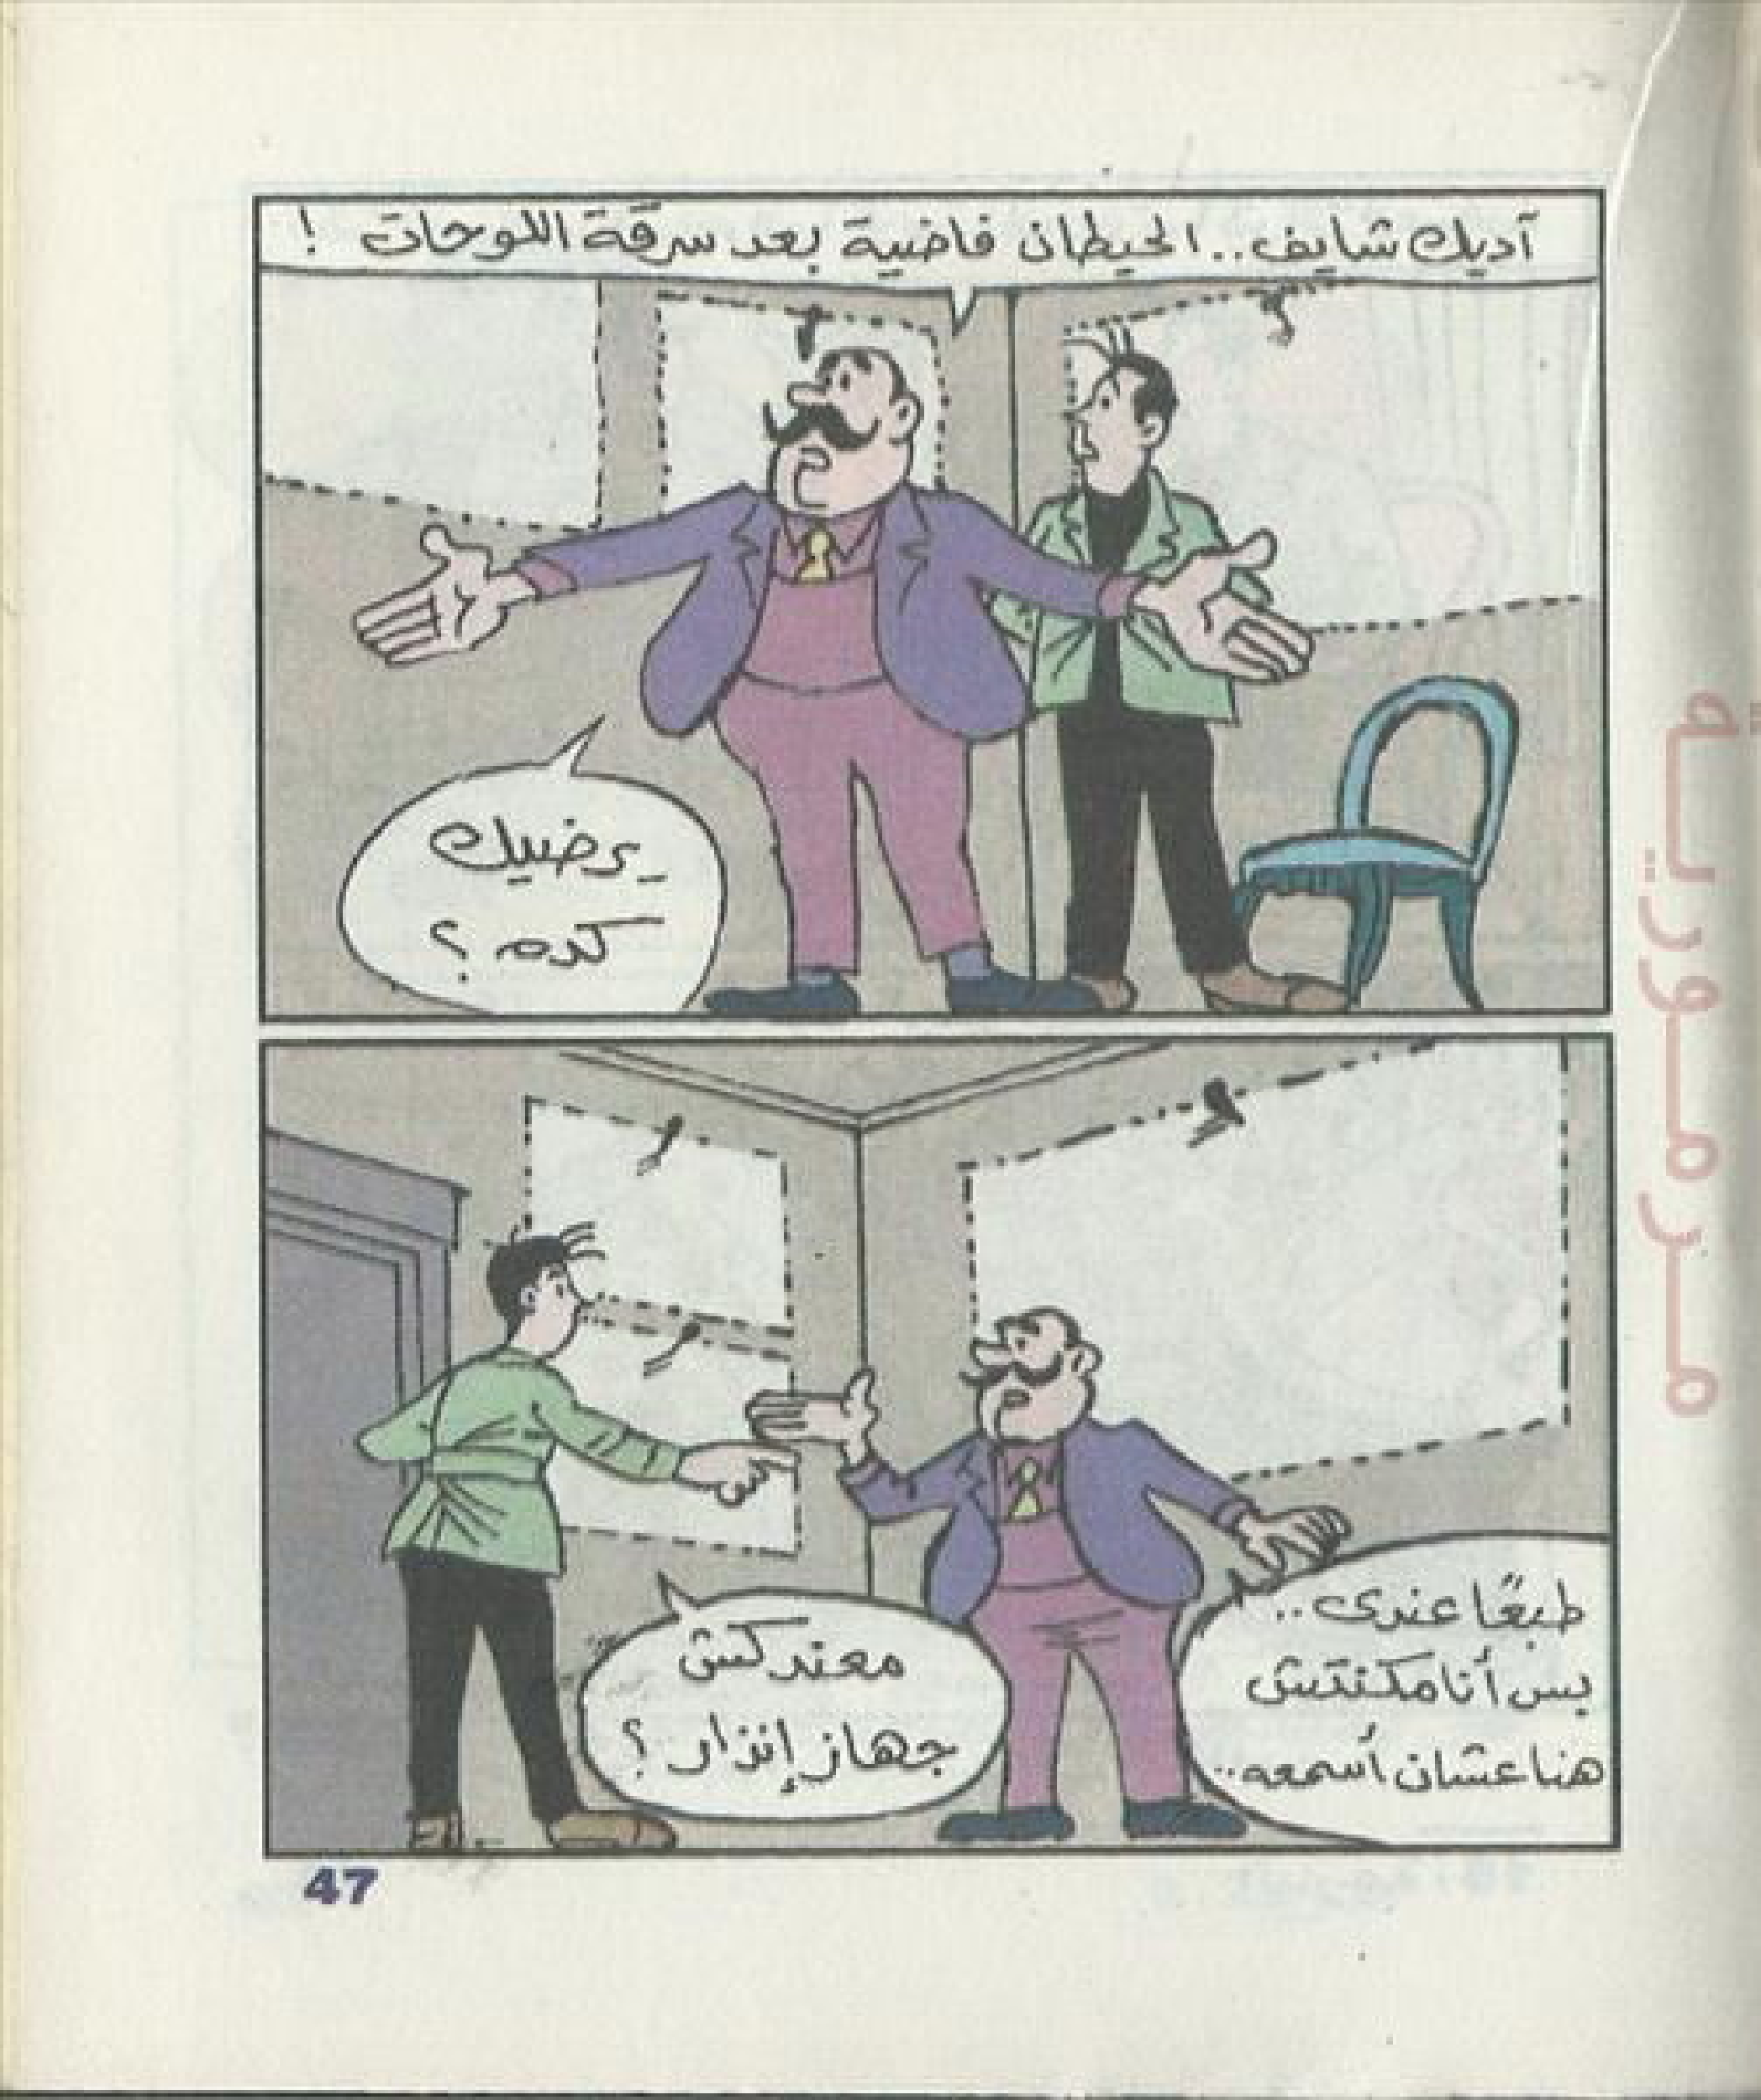 آديك شايف.. الحيطان فاضية بعد سرقة اللوحات !
يرضيك
كده ؟
معندكش
جهاز إنزار ؟
طبعًا عندى..
بس أنا مكنتش
هنا عشان أسمعه..
47
مرمورية